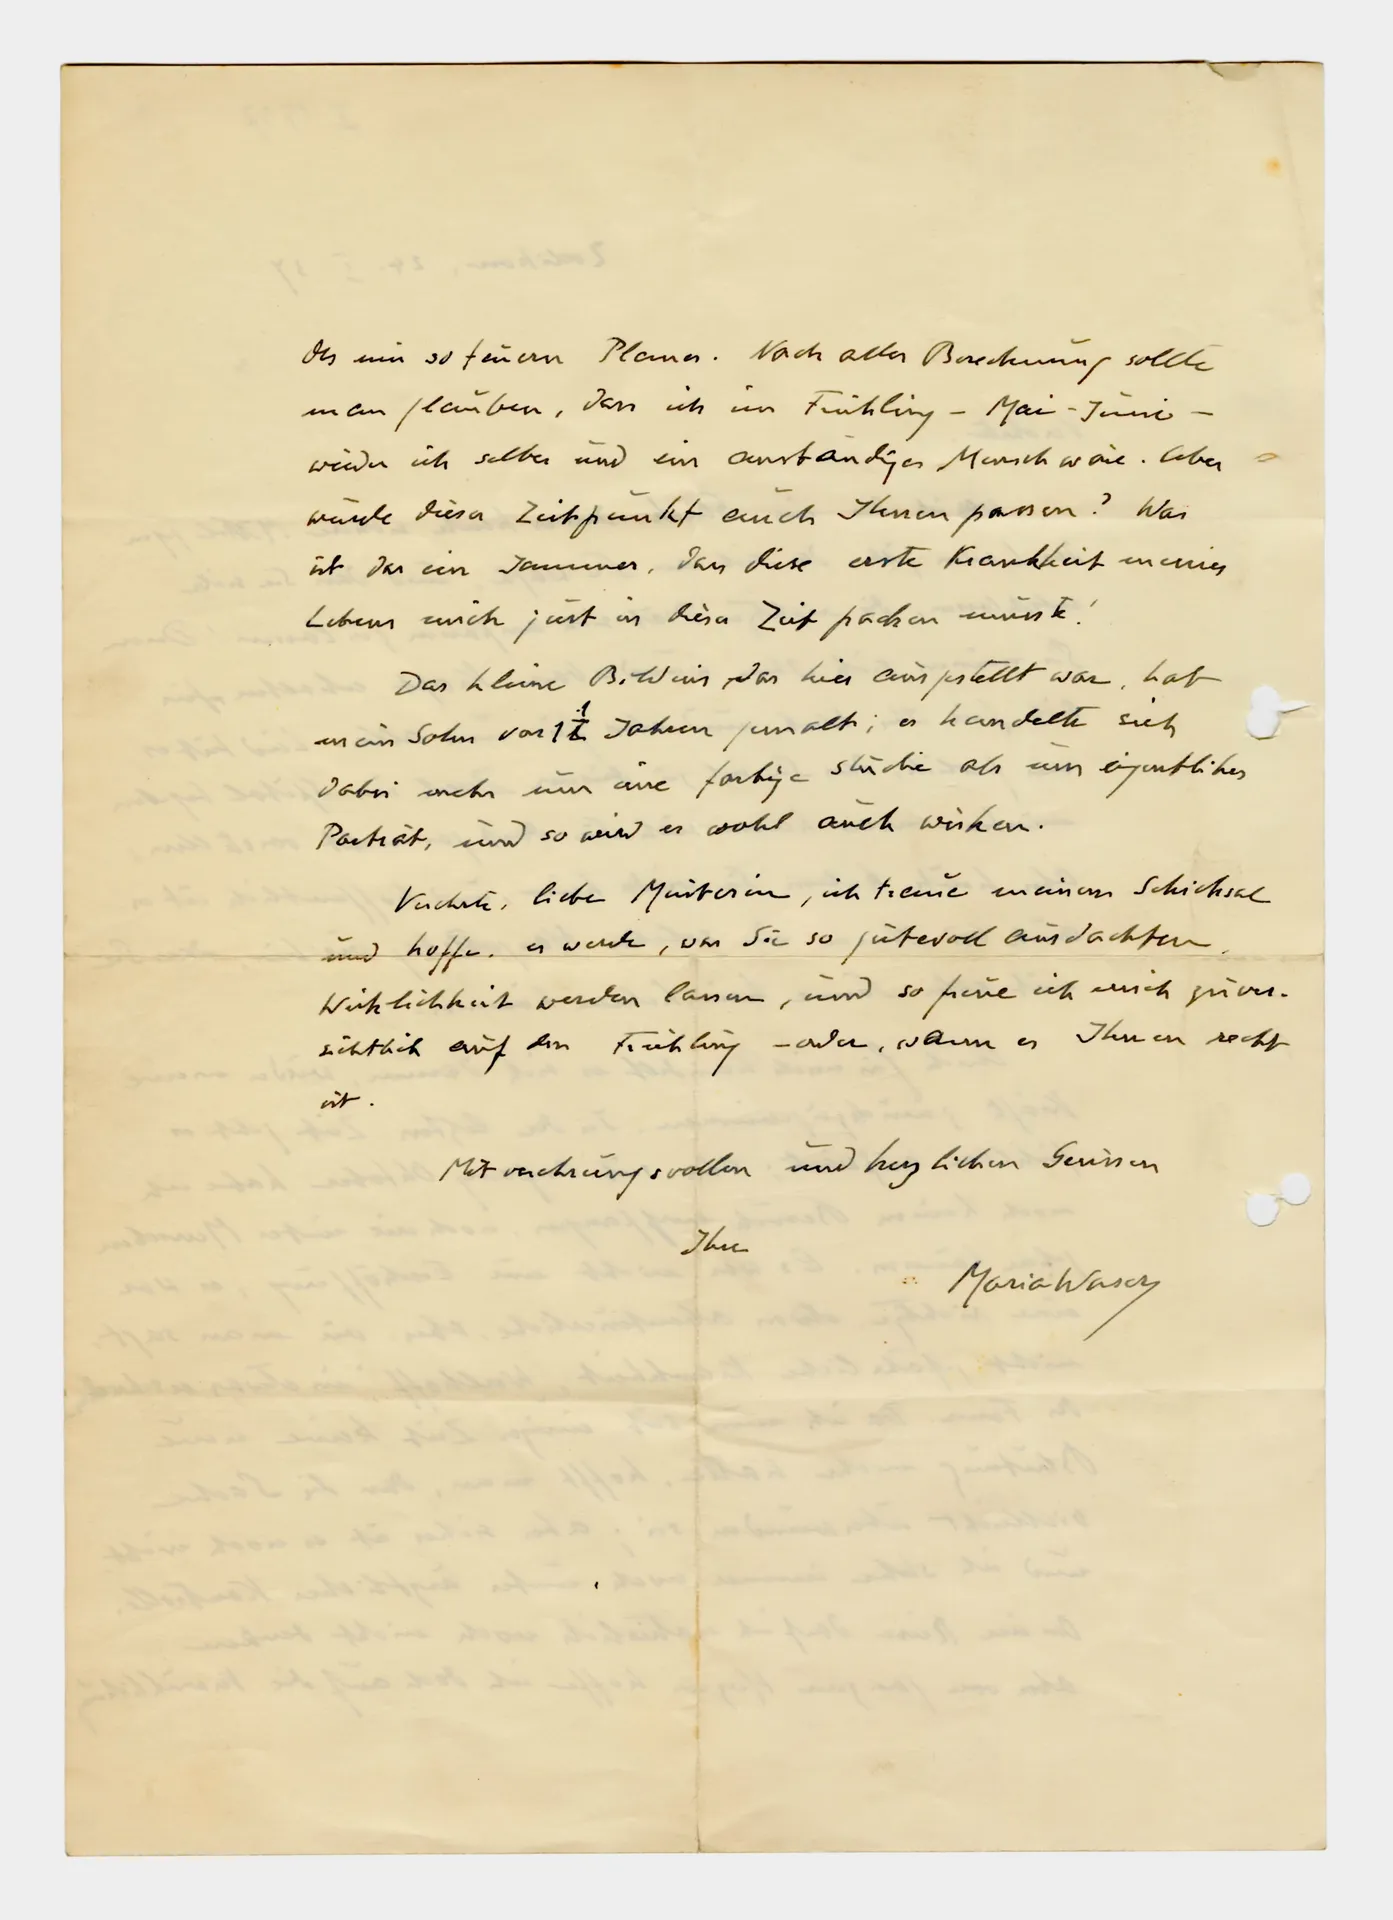 des mir so teuern Planes. Nach aller Berechnung sollte
man glauben, dass ich im Frühling – Mai-Juni –
wieder ich selber und ein anständiger Mensch wäre. Aber
würde dieser Zeitpunkt auch Ihnen passen? Was
ist das ein Jammer, dass diese erste Krankheit meines
Lebens mich just in dieser Zeit packen musste!
Das kleine Bildnis, das hier ausgestellt war, hat
mein Sohn vor 1 Jahren gemalt; es handelte sich
dabei mehr um eine farbige Studie als um eigentliches
Porträt, und so wird es wohl auch wirken.
Verehrte, liebe Meisterin, ich traue meinem Schicksal
und hoffe, es werde, was Sie so gütevoll ausdachten,
Wirklichkeit werden lassen, und so freue ich mich zuver-
sichtlich auf den Frühling – oder, wann es Ihnen recht
ist.
Mit verehrungsvollen und herzlichen Grüssen
Ihre
Maria Waser